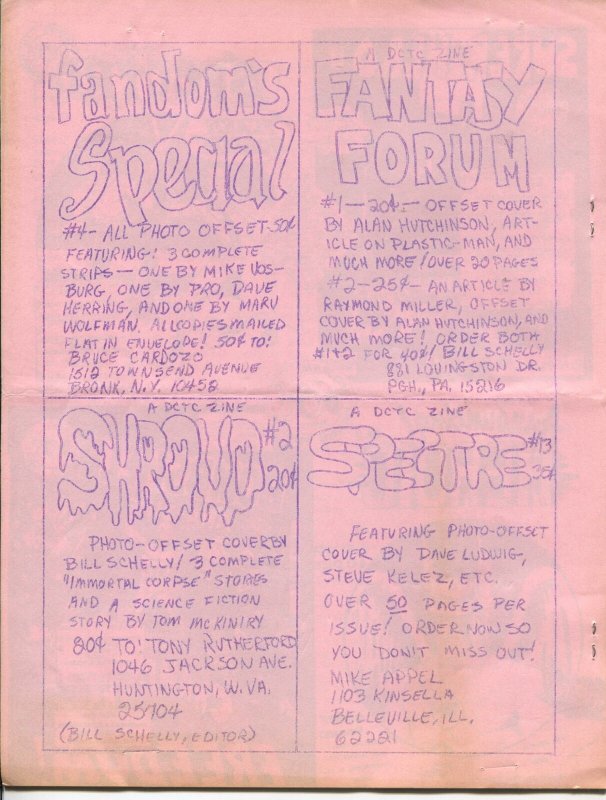 fandom's
Special
#4- ALL PHOTO OFFSET-50¢
FEATURING: 3 COMPLETE
STRIPS— ONE BY MIKE VOS-
BURG, ONE BY PRO, DAVE
HERRING, AND ONE BY MARV
WOLFMAN. ALL COPIES MAILED
FLAT IN ENVELOPE! 50¢ TO:
BRUCE CARDOZO
1612 TOWNSEND AVENUE
BRONX, N.Y. 10452
A DCTC ZINE
FANTASY
FORUM
#1—20¢— OFFSET COVER
BY ALAN HUTCHINSON, ART-
ICLE ON PLASTIC-MAN, AND
MUCH MORE! OVER 20 PAGES
#2-25¢- AN ARTICLE BY
RAYMOND MILLER, OFFSET
COVER BY ALAN HUTCHINSON, AND
MUCH MORE! ORDER BOTH
#1+2 FOR 40¢! BILL SCHELLY
881 LOVINGSTON DR.
PGH., PA. 15216
A DCTC ZINE
SHROUD #2
20¢
PHOTO-OFFSET COVER BY
BILL SCHELLY! 3 COMPLETE
"IMMORTAL CORPSE" STORIES
AND A SCIENCE FICTION
STORY BY TOM McKINIRY
20¢ TO: TONY RUTHERFORD
1046 JACKSON AVE.
HUNTINGTON, W. VA.
25704
(BILL SCHELLY, EDITOR)
A DCTC ZINE
SPECTRE #13
35¢
FEATURING PHOTO-OFFSET
COVER BY DAVE LUDWIG,
STEVE KELEZ, ETC.
OVER 50 PAGES PER
ISSUE! ORDER NOW SO
YOU DON'T MISS OUT!
MIKE APPEL
1103 KINSELLA
BELLEVILLE, ILL.
62221